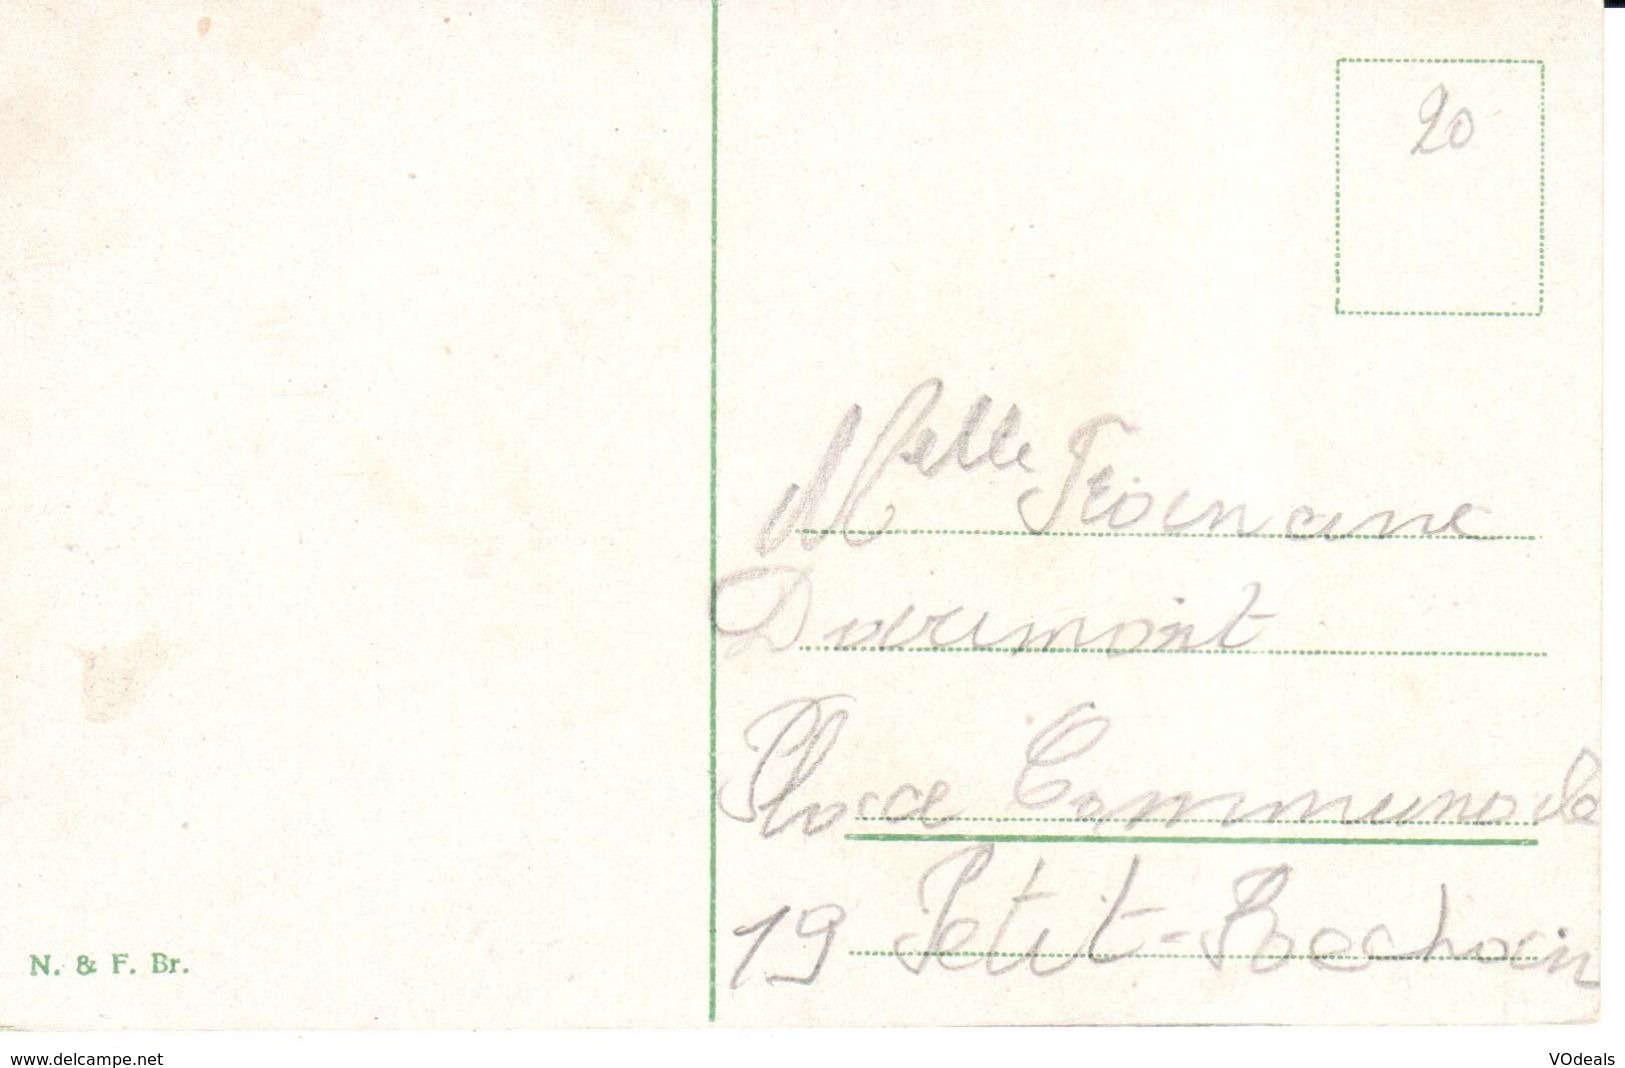 20
Melle Jeannane
Darimont
Place Communale
19 Petit-Rechain
N. & F. Br.
www.delcampe.net
VOdeals